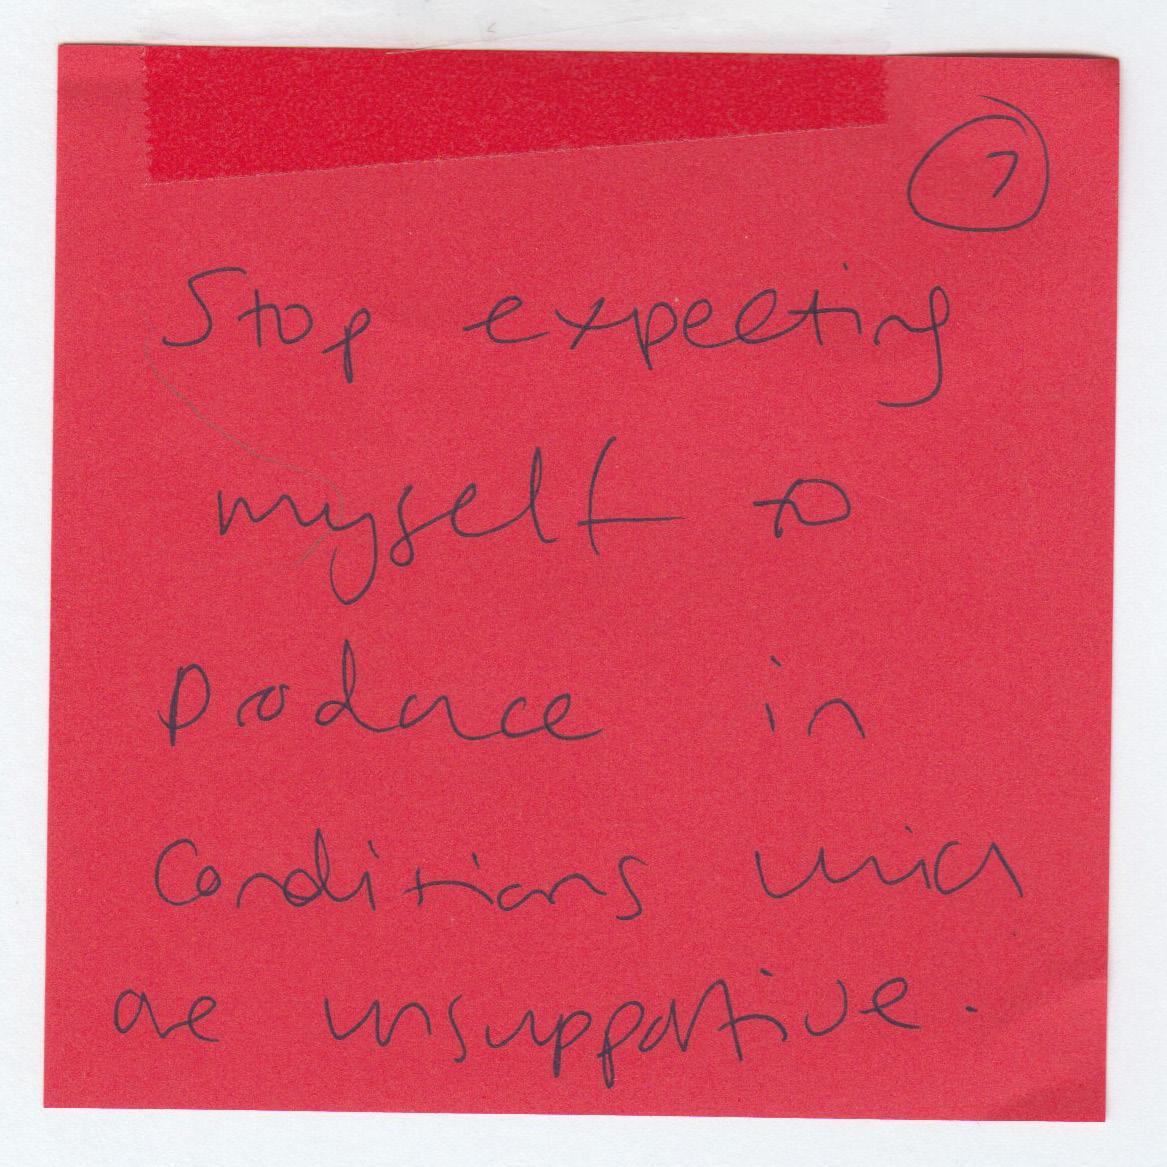 7
Stop expecting
myself to
produce in
conditions which
are unsupportive.